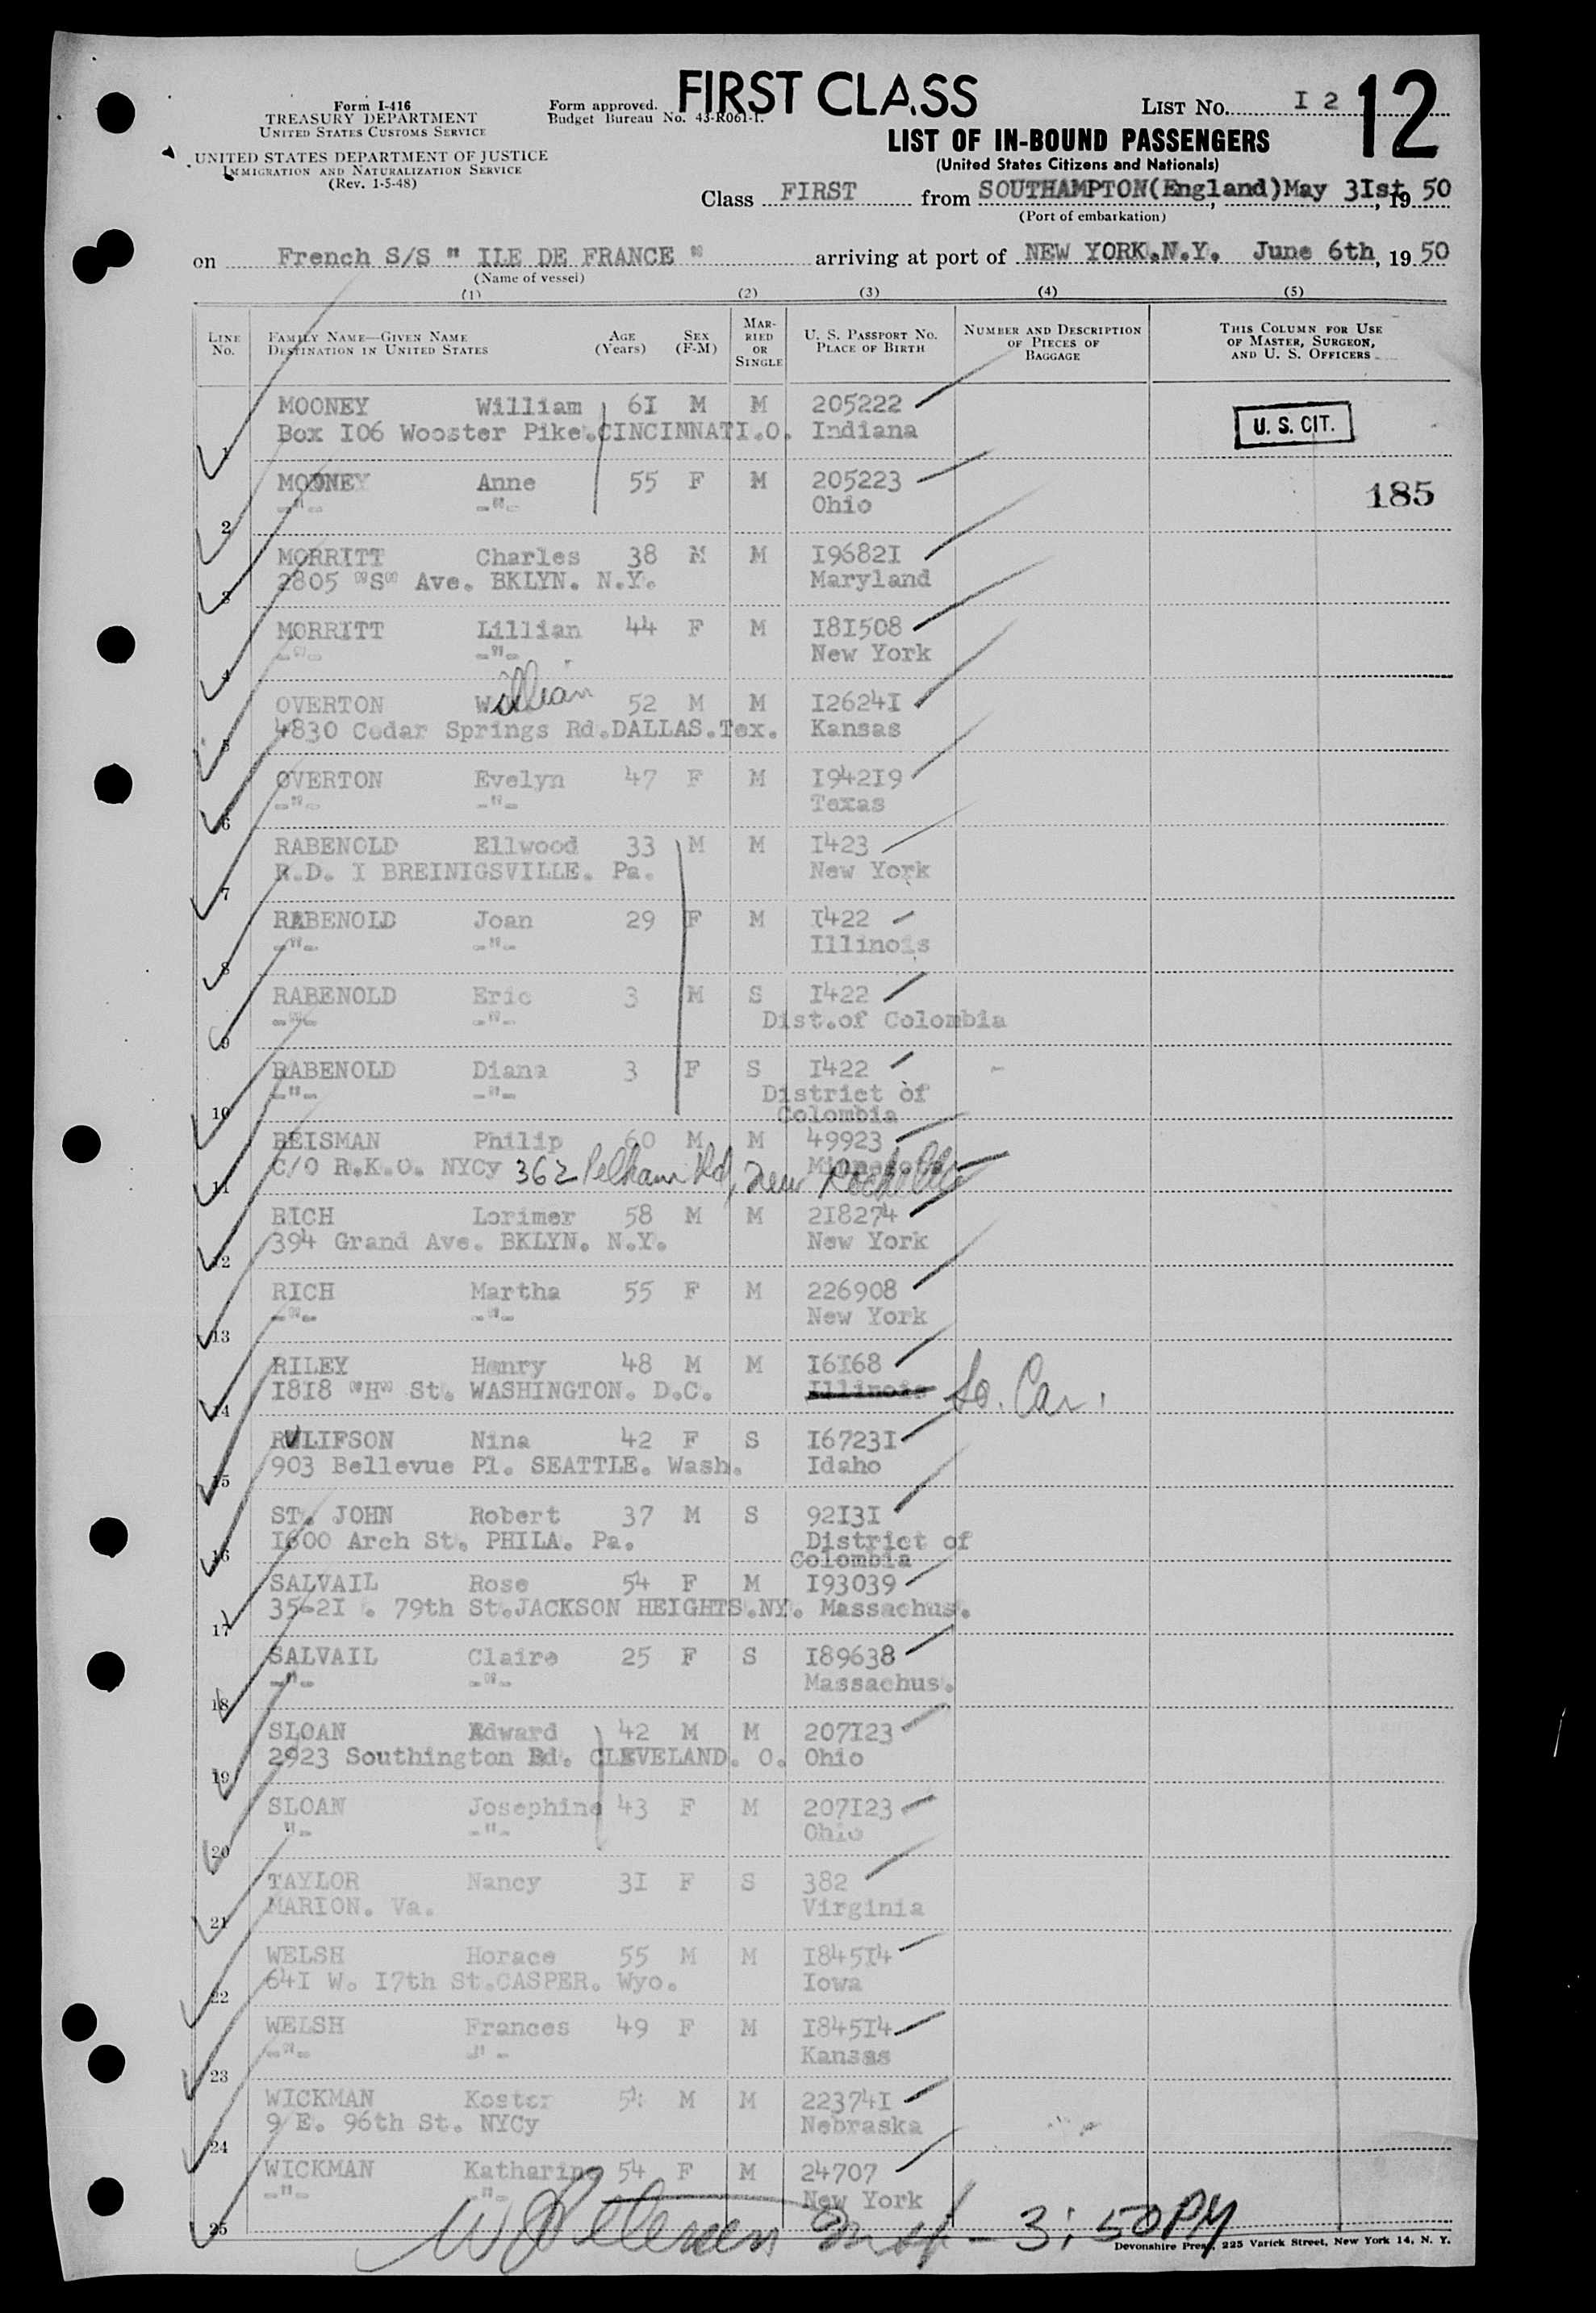 Form I-416
TREASURY DEPARTMENT
UNITED STATES CUSTOMS SERVICE
UNITED STATES DEPARTMENT OF JUSTICE
IMMIGRATION AND NATURALIZATION SERVICE
(Rev. 1-5-48)
Form approved.
Budget Bureau No. 43-R061-1.
FIRST CLASS
LIST NO. I 2
12
LIST OF IN-BOUND PASSENGERS
(United States Citizens and Nationals)
Class FIRST from SOUTHAMPTON(England)May 3Ist, 19 50
(Port of embarkation)
on French S/S " ILE DE FRANCE " arriving at port of NEW YORK.N.Y. June 6th, 19 50
(Name of vessel)
(1) (2) (3) (4) (5)
LINE NO. FAMILY NAME—GIVEN NAME DESTINATION IN UNITED STATES AGE (Years) SEX (F-M) MARRIED OR SINGLE U. S. PASSPORT NO. PLACE OF BIRTH NUMBER AND DESCRIPTION OF PIECES OF BAGGAGE THIS COLUMN FOR USE OF MASTER, SURGEON, AND U. S. OFFICERS
MOONEY William 6I M M 205222
1 Box I06 Wooster Pike.CINCINNATI.O. Indiana U. S. CIT.
MOONEY Anne 55 F M 205223
2 -"- -"- Ohio 185
MORRITT Charles 38 M M I9682I
3 2805 "S" Ave. BKLYN. N.Y. Maryland
MORRITT Lillian 44 F M I8I508
4 -"- -"- New York
OVERTON William 52 M M I2624I
5 4830 Cedar Springs Rd.DALLAS.Tex. Kansas
OVERTON Evelyn 47 F M I942I9
6 -"- -"- Texas
RABENOLD Ellwood 33 M M I423
7 R.D. I BREINIGSVILLE. Pa. New York
RABENOLD Joan 29 F M I422
8 -"- -"- Illinois
RABENOLD Eric 3 M S I422
9 -"- -"- Dist.of Colombia
RABENOLD Diana 3 F S I422
10 -"- -"- District of Colombia
REISMAN Philip 60 M M 49923
11 C/O R.K.O. NYCy 362 Pelham Rd, New Rochelle Minnesota
RICH Lorimer 58 M M 2I8274
12 394 Grand Ave. BKLYN. N.Y. New York
RICH Martha 55 F M 226908
13 -"- -"- New York
RILEY Henry 48 M M I6I68
14 I8I8 "H" St. WASHINGTON. D.C. Illinois So. Car.
RULIFSON Nina 42 F S I6723I
15 903 Bellevue Pl. SEATTLE. Wash. Idaho
ST. JOHN Robert 37 M S 92I3I
16 I600 Arch St. PHILA. Pa. District of Colombia
SALVAIL Rose 54 F M I93039
17 35-2I . 79th St.JACKSON HEIGHTS.NY. Massachus.
SALVAIL Claire 25 F S I89638
18 -"- -"- Massachus.
SLOAN Edward 42 M M 207I23
19 2923 Southington Rd. CLEVELAND. O. Ohio
SLOAN Josephine 43 F M 207I23
20 "- -"- Ohio
TAYLOR Nancy 3I F S 382
21 MARION. Va. Virginia
WELSH Horace 55 M M I845I4
22 64I W. I7th St.CASPER. Wyo. Iowa
WELSH Frances 49 F M I845I4
23 -"- -"- Kansas
WICKMAN Koster 54 M M 22374I
24 9 E. 96th St. NYCy Nebraska
WICKMAN Katharine 54 F M 24707
25 -"- -"- New York
W Petersen Insp - 3:50PM
Devonshire Press, 225 Varick Street, New York 14, N. Y.